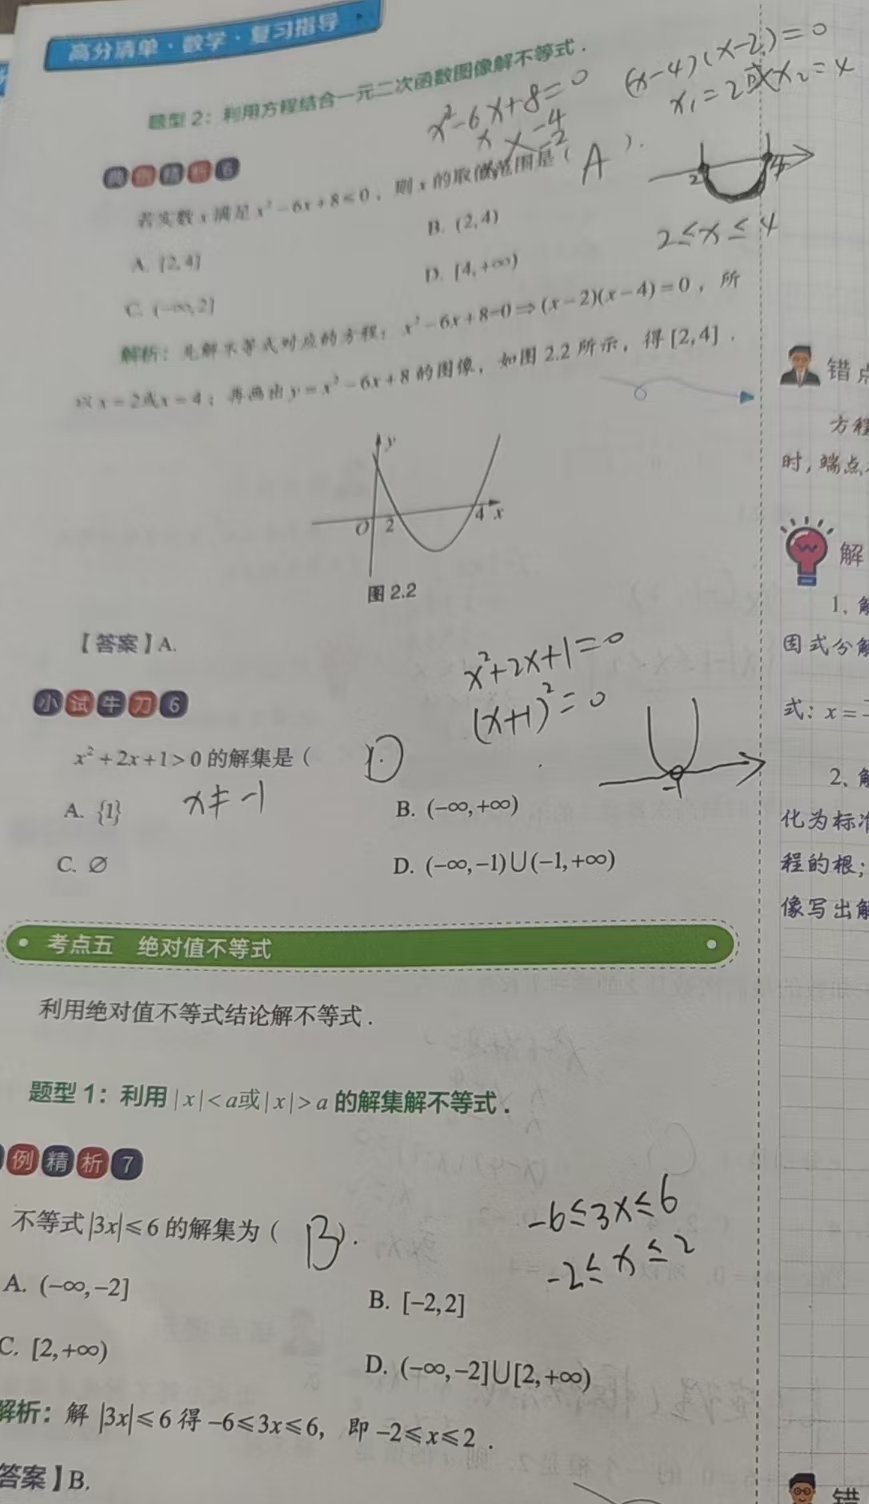 高分清单·数学·复习指导
题型 2：利用方程结合一元二次函数图像解不等式．
x²-6x+8=0
x -4
x -2
(x-4)(x-2)=0
x₁=2或x₂=4
典例精析6
若实数 x 满足 x²－6x+8≤0，则 x 的取值范围是（ A ）．
A. [2,4]
B. (2,4)
C. (-∞,2]
D. [4,+∞)
2 4
2≤x≤4
解析：先解不等式对应的方程：x²－6x+8=0⇒(x－2)(x－4)=0，所
以 x=2或x=4；再画出 y=x²－6x+8 的图像，如图 2.2 所示，得 [2,4]．
y
O 2 4 x
图 2.2
【答案】A.
小试牛刀6
x²+2x+1=0
(x+1)²=0
x²+2x+1>0 的解集是（ D
A. {1}
x≠-1
B. (-∞,+∞)
C. ∅
D. (-∞,-1)∪(-1,+∞)
-1
考点五 绝对值不等式
利用绝对值不等式结论解不等式．
题型 1：利用 |x|<a或|x|>a 的解集解不等式．
例精析7
不等式 |3x|≤6 的解集为（ B ）．
-6≤3x≤6
-2≤x≤2
A. (-∞,-2]
B. [-2,2]
C. [2,+∞)
D. (-∞,-2]∪[2,+∞)
解析：解 |3x|≤6 得 -6≤3x≤6，即 -2≤x≤2．
答案】B.
错点
方程
时，端点
解
1、解
因式分解
式：x=
2、解
化为标准
程的根；
像写出解
错